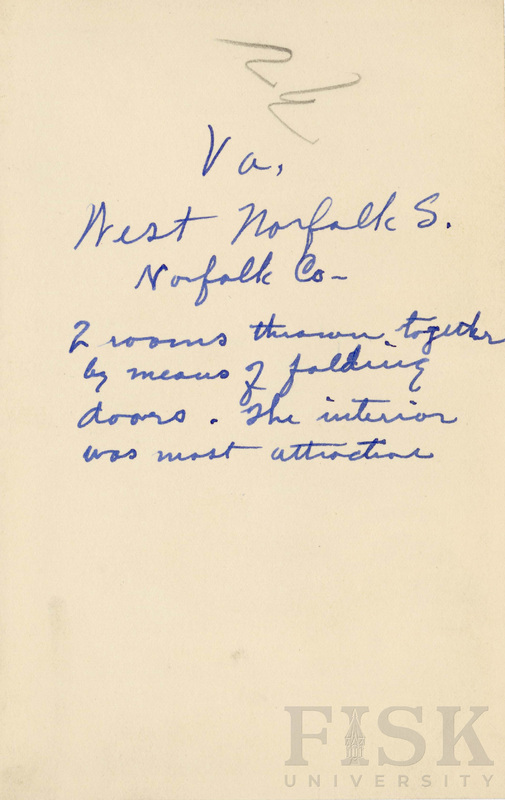 Va,
West Norfolk S.
Norfolk Co-
2 rooms thrown together
by means of folding
doors. The interior
was most attractive
FISK
UNIVERSITY